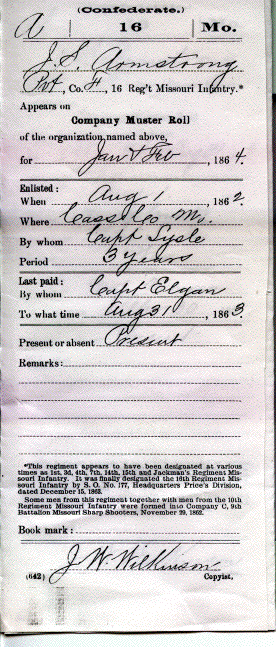 (Confederate.)
A | 16 | Mo.
J. S. Armstrong
Pvt, Co. H, 16 Reg't Missouri Infantry.*
Appears on
Company Muster Roll
of the organization named above,
for Jan & Feb, 1864.
Enlisted:
When Aug 1, 1862.
Where Cass Co Mo.
By whom Capt Lysle
Period 3 years
Last paid:
By whom Capt Elgan
To what time Aug 31, 1863.
Present or absent Present
Remarks:
*This regiment appears to have been designated at various
times as 1st, 3d, 4th, 7th, 14th, 15th and Jackman's Regiment Mis-
souri Infantry. It was finally designated the 16th Regiment Mis-
souri Infantry by S. O. No. 177, Headquarters Price's Division,
dated December 15, 1863.
Some men from this regiment together with men from the 10th
Regiment Missouri Infantry were formed into Company C, 9th
Battalion Missouri Sharp Shooters, November 29, 1862.
Book mark:
J W Wilkinson
(642) Copyist.